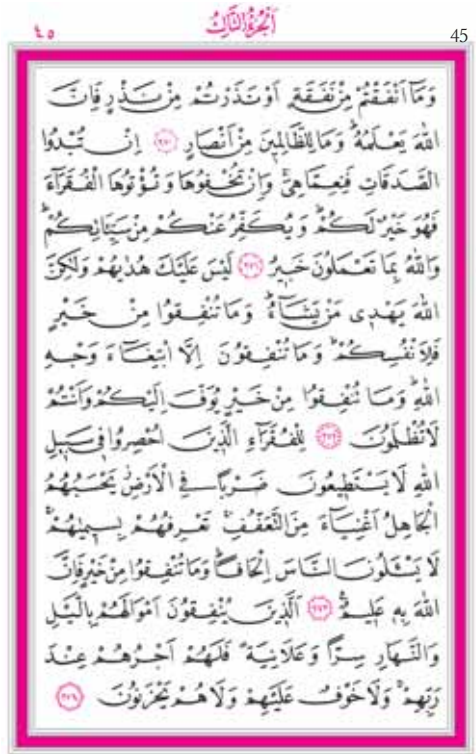 الجزء الثالث
٤٥
45
وَمَٓا اَنْفَقْتُمْ مِنْ نَفَقَةٍ اَوْ نَذَرْتُمْ مِنْ نَذْرٍ فَاِنَّ
اللّٰهَ يَعْلَمُهُۜ وَمَا لِلظَّالِمٖينَ مِنْ اَنْصَارٍ ﴿٢٧٠﴾ اِنْ تُبْدُوا
الصَّدَقَاتِ فَنِعِمَّا هِيَۚ وَاِنْ تُخْفُوهَا وَتُؤْتُوهَا الْفُقَرَٓاءَ
فَهُوَ خَيْرٌ لَكُمْۜ وَيُكَفِّرُ عَنْكُمْ مِنْ سَيِّـَٔاتِكُمْۜ
وَاللّٰهُ بِمَا تَعْمَلُونَ خَبٖيرٌ ﴿٢٧١﴾ لَيْسَ عَلَيْكَ هُدٰيهُمْ وَلٰكِنَّ
اللّٰهَ يَهْدٖي مَنْ يَشَٓاءُۜ وَمَا تُنْفِقُوا مِنْ خَيْرٍ
فَلِاَنْفُسِكُمْۜ وَمَا تُنْفِقُونَ اِلَّا ابْتِغَٓاءَ وَجْهِ
اللّٰهِۜ وَمَا تُنْفِقُوا مِنْ خَيْرٍ يُوَفَّ اِلَيْكُمْ وَاَنْتُمْ
لَا تُظْلَمُونَ ﴿٢٧٢﴾ لِلْفُقَرَٓاءِ الَّذٖينَ اُحْصِرُوا فٖي سَبٖيلِ
اللّٰهِ لَا يَسْتَطٖيعُونَ ضَرْبًا فِي الْاَرْضِۘ يَحْسَبُهُمُ
الْجَاهِلُ اَغْنِيَٓاءَ مِنَ التَّعَفُّفِۚ تَعْرِفُهُمْ بِسٖيمٰيهُمْۚ
لَا يَسْـَٔلُونَ النَّاسَ اِلْحَافًاۜ وَمَا تُنْفِقُوا مِنْ خَيْرٍ فَاِنَّ
اللّٰهَ بِهٖ عَلٖيمٌ ﴿٢٧٣﴾ اَلَّذٖينَ يُنْفِقُونَ اَمْوَالَهُمْ بِالَّيْلِ
وَالنَّهَارِ سِرًّا وَعَلَانِيَةً فَلَهُمْ اَجْرُهُمْ عِنْدَ
رَبِّهِمْۚ وَلَا خَوْفٌ عَلَيْهِمْ وَلَا هُمْ يَحْزَنُونَ ﴿٢٧٤﴾